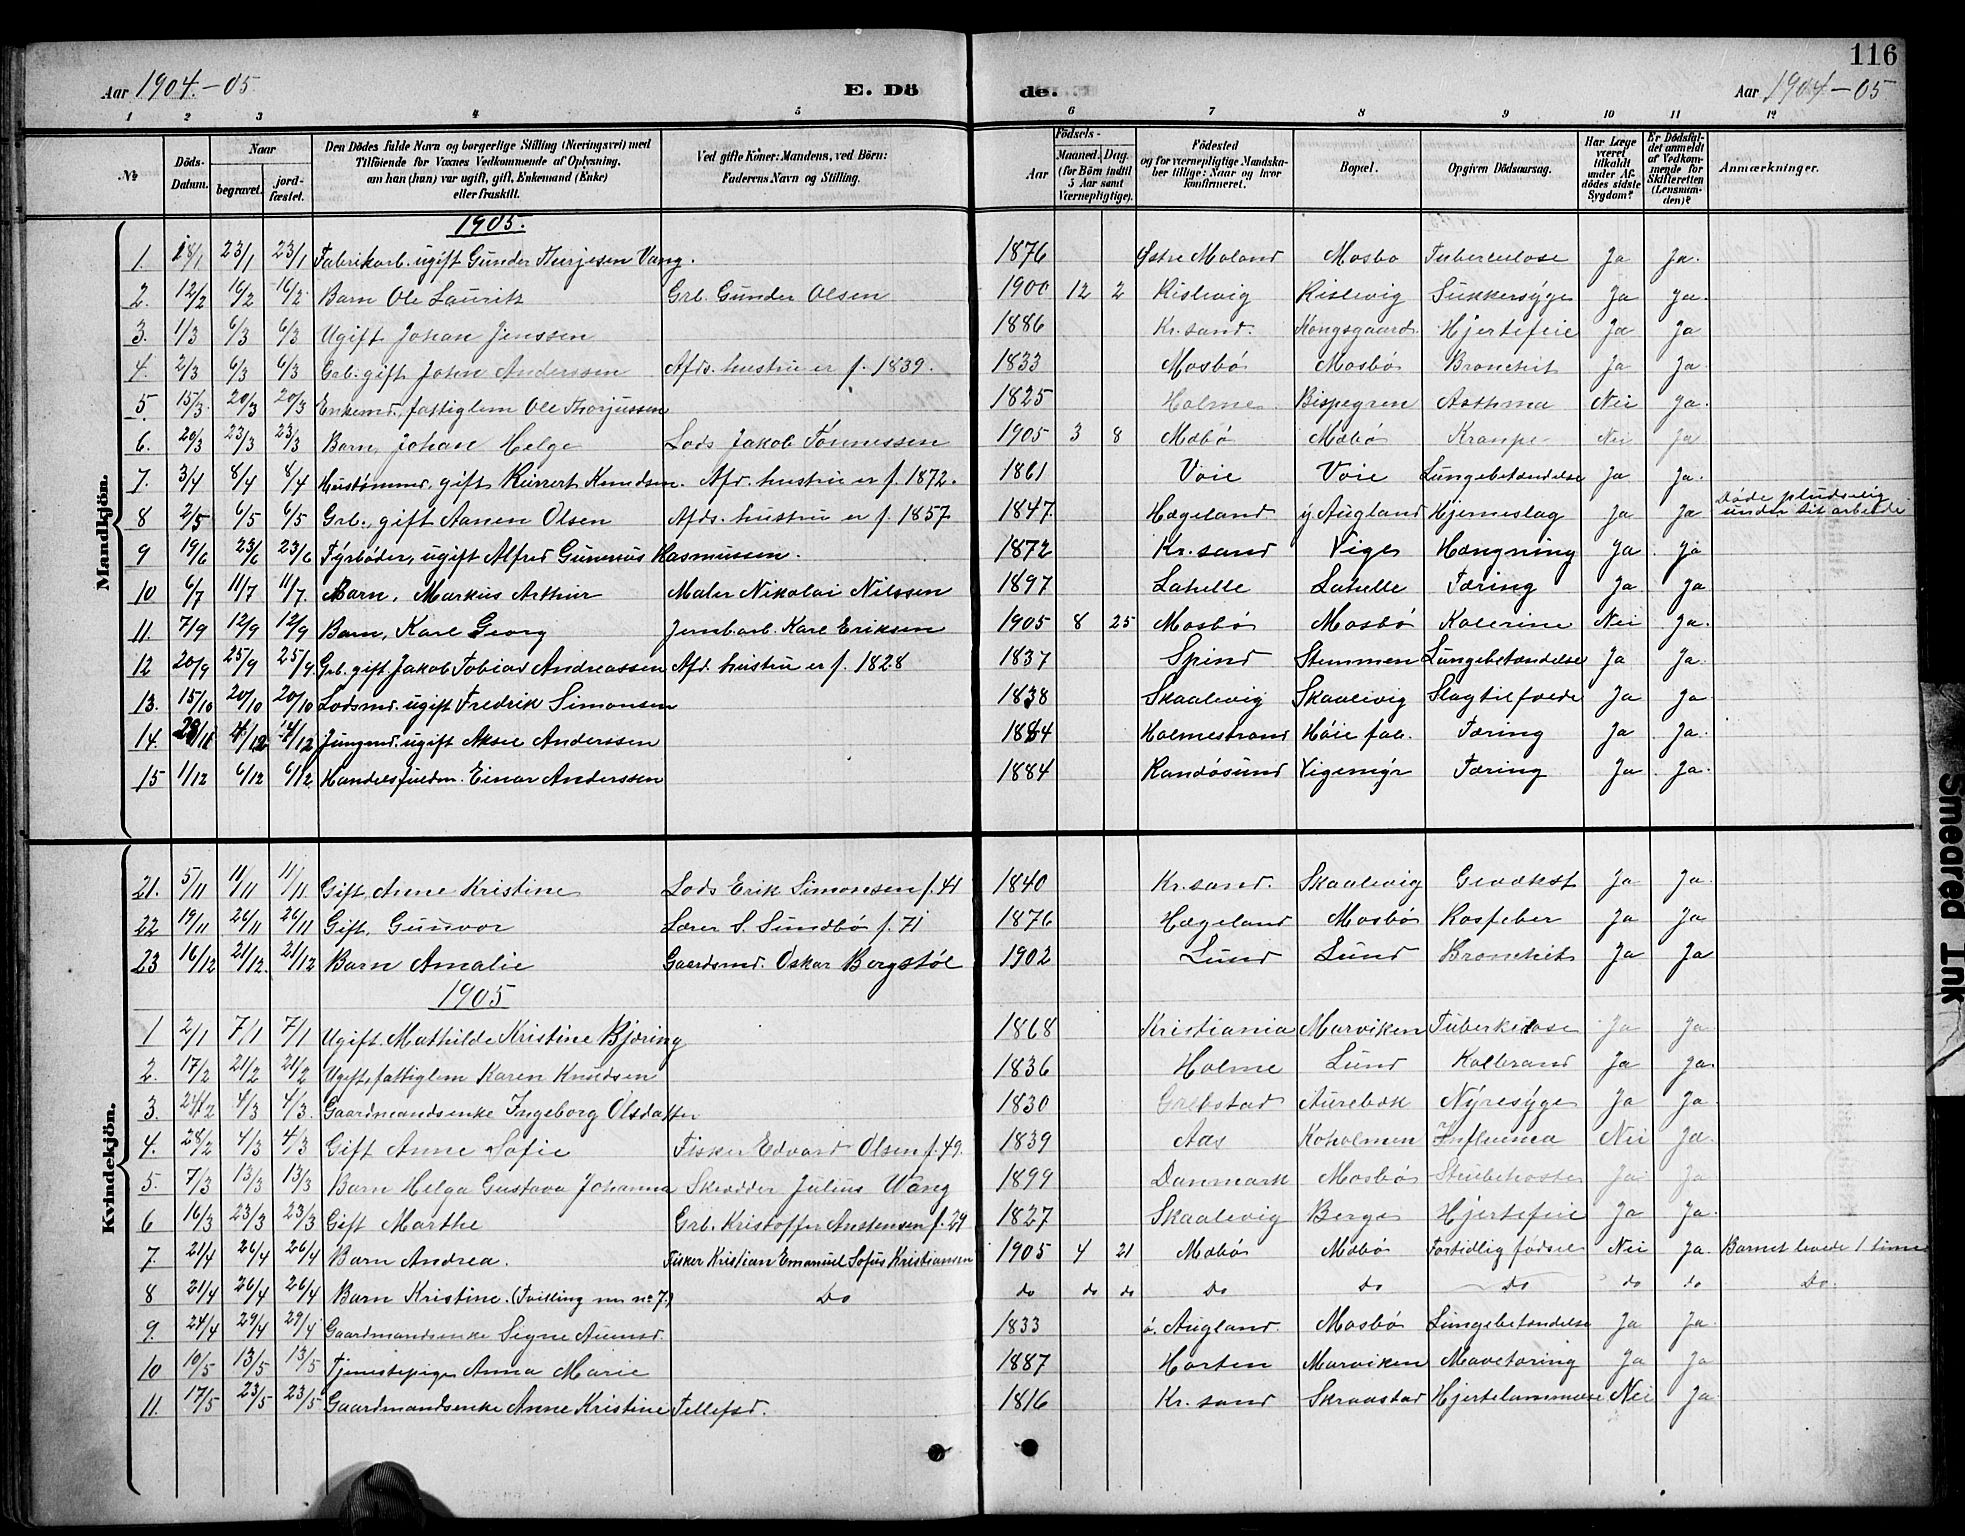 116
Aar 1904.-05 E. Dö de. Aar 1904-05
1 2 3 4 5 6 7 8 9 10 11 12
№ Döds-Datum. Naar begravet. jord-fæstet. Den Dödes fulde Navn og borgerlige Stilling (Næringsvei) med Tilföiende for Voxnes Vedkommende af Oplysning, om han (hun) var ugift, gift, Enkemand (Enke) eller fraskilt. Ved gifte Koner: Mandens, ved Börn: Faderens Navn og Stilling. Födsels- Aar Maaned. Dag. (for Börn indtil 5 Aar samt Værnepligtige). Födested og for værnepligtige Mandskaber tillige: Naar og hvor konfirmeret. Bopæl. Opgiven Dödsaarsag. Har Læge været tilkaldt under Afdödes sidste Sygdom? Er Dödsfaldet anmeldt af Vedkommende for Skifteretten (Lensmanden)? Anmærkninger.
Mandkjön.
1905.
1. 18/1 23/1 23/1 Fabrikarb. ugift Gunder Terjesen Vang. 1876 Østre Moland Mosbø Tuberculose Ja Ja.
2. 12/2 16/2 16/2 Barn Ole Lauritz Grb. Gunder Olsen 1900 12 2 Kislevig Kislevig Sukkersyge Ja Ja.
3. 1/3 6/3 6/3 Ugift Johan Jenssen 1886 Kr.sand. Kongsgaard Hjertefeil Ja Ja
4. 2/3 6/3 6/3 Grb. gift John Anderssen Afds. hustru er f. 1839. 1833 Mosbö Mosbö Bronchit Ja Ja
5 15/3 20/3 20/3 Enkemd. fattiglem Ole Thorjussen 1825 Holme Bispegren Asthma Nei Ja.
6. 20/3 23/3 23/3 Barn, Johan Helge Lods Jakob Tönnessen 1905 3 8 Mæbö Mæbö Krampe Nei Ja
7. 3/4 8/4 8/4 Hustömmd. gift Reinert Knudsen. Afd. hustru er f. 1872. 1861 Voie Voie Lungebetændelse Ja Ja.
8 2/5 6/5 6/5 Grb. gift Aanen Olsen Afds. hustru er f. 1857 1847. Hægeland y. Augland Hjerneslag Ja Ja Döde pludselig under sit arbeide
9 19/6 23/6 23/6 Fyrböder, ugift Alfred Gunerius Rasmussen. 1872 Kr.sand Vige Hængning Ja Ja
10 6/7 11/7 11/7. Barn, Markus Arthur Maler Nikolai Nilssen 1897 Lahelle Lahelle Tæring Ja Ja
11. 7/9 12/9 12/9 Barn, Karl Georg Jernbarb. Karl Eriksen 1905 8 25 Mosbö Mosbö Kolerine Nei Ja.
12 20/9 25/9 25/9 Grb. gift Jakob Tobias Andreassen Afd. hustru er f. 1828 1837 Spind Stemmen Lungebetændelse Ja Ja.
13. 15/10 20/10 20/10 Lodsmd. ugift Fredrik Simonsen 1838 Skaalevig Skaalevig Slagtilfælde Ja Ja
14. 28/11 4/12 4/12 Jungmd. ugift Aksel Anderssen 1884 Holmestrand Höie fab. Tæring Ja Ja.
15 1/12 6/12 6/12 Handelsfuldm. Einar Anderssen 1884 Randösund Vigemyr Tæring Ja Ja.
Kvindekjön.
21. 5/11 11/11 11/11. Gift, Anne Kristine Lods Erik Simonsen f. 41 1840 Kr.sand. Skaalevig Gevækst Ja Ja.
22 19/11 26/11 26/11 Gift, Gunvor Lærer S. Sundbö f. 71 1876 Hægeland Mosbö Rosfeber Ja Ja
23 16/12 21/12. 21/12 Barn Amalie Gaardsmd. Oskar Bergstöl 1902 Lund Lund Bronchit Ja Ja
1905
1 2/1 7/1 7/1 Ugift. Mathilde Kristine Björing 1868 Kristiania Marviken Tuberkulose Ja Ja.
2. 17/2 21/2 21/2 Ugift, fattiglem Karen Knudsen 1836 Holme Lund Kolbrand Ja Ja.
3. 24/2 4/3 4/3. Gaardmandsenke Ingeborg Olsdatter 1830 Grebstad Aurebæk Nyresyge Ja Ja.
4. 28/2 4/3 4/3 Gift Anne Sofie Fisker Edvard Olsen f. 49. 1839 Aas Koholmen Influensa Nei Ja.
5. 7/3 13/3 13/3 Barn Helga Gustava Johanna Skrædder Julius Wang 1899 Danmark Mosbö Strubehoste Ja Ja
6 16/3 23/3 23/3 Gift Marthe Grb. Kristoffer Anstensen f. 29 1827 Skaalevig Berge Hjertefeil Ja Ja.
7. 21/4 26/4 26/4 Barn Andrea. Fisker Kristian Emanuel Sofus Kristiansen 1905 4 21 Mæbö Mæbö Fortidlig födsel Nei Ja. Barnet levede 1 time
8 21/4 26/4 26/4 Barn Kristine. (Tvilling m nº 7.) Do do do do Do Do Do do do Do.
9. 24/4 29/4 29/4 Gaardmandsenke Signe Aunsd. 1833 ö. Augland. Mosbö Lungebetændelse Ja Ja.
10 10/5 13/5 13/5 Tjenestepige Anna Marie 1887 Horten Marviken Mavetæring Ja Ja
11. 17/5 23/5 23/5 Gaardmandsenke Anne Kristine Tellefsd. 1816 Kr.sand Skraastad Hjertelammelse Nei Ja
Smeared Ink